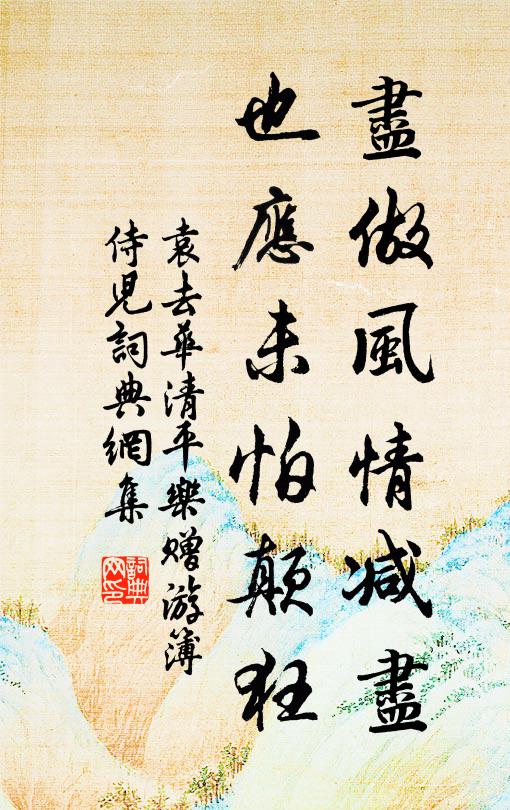 盡做風情減盡
也應未怕顛狂
袁去華清平樂贈游簿
侍兒詞典網集
詞典網印